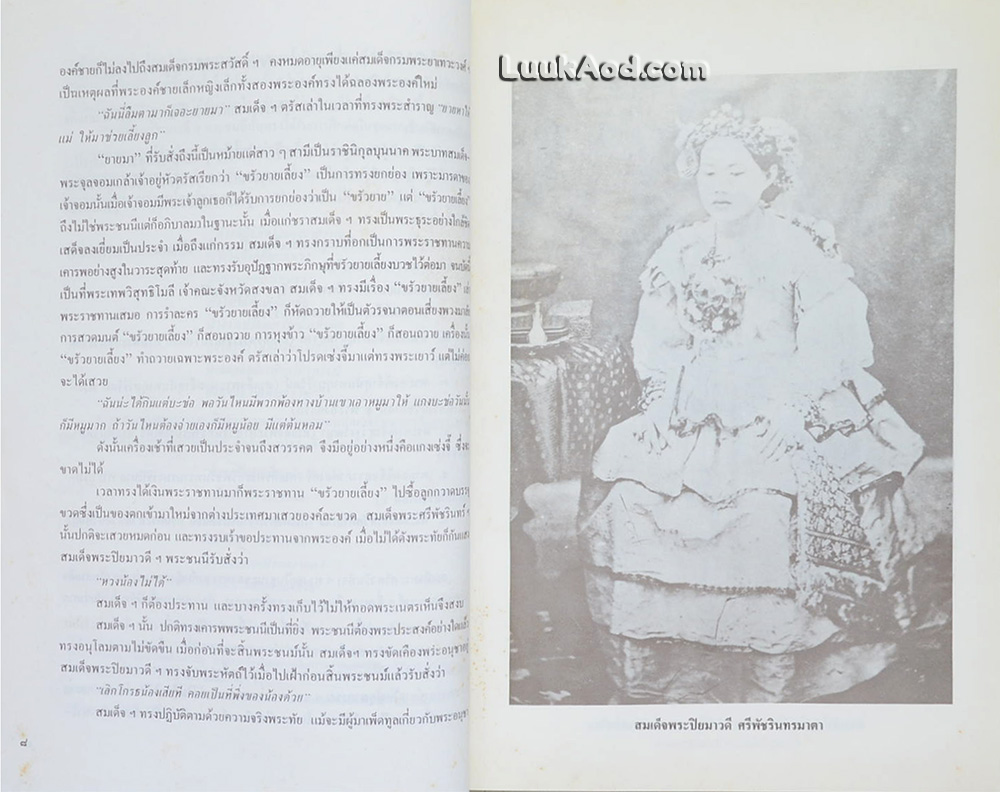 องค์ชายก็ไม่ลงไปถึงสมเด็จกรมพระสวัสดิ์ ฯ คงหมดอายุเพียงแค่สมเด็จกรมพระยาเทวะวงศ์ ฯ
เป็นเหตุผลที่พระองค์ชายเล็กหญิงเล็กทั้งสองพระองค์ทรงได้ฉลองพระองค์ใหม่
"ฉันนี่ลืมตามาก็เจอะยายมา" สมเด็จ ฯ ตรัสเล่าในเวลาที่ทรงพระสำราญ "ยายหาให้
แม่ ให้มาช่วยเลี้ยงลูก"
"ยายมา" ที่รับสั่งถึงนี้เป็นหม้ายแต่สาว ๆ สามีเป็นราชินิกุลบุนนาค พระบาทสมเด็จ
พระจุลจอมเกล้าเจ้าอยู่หัวตรัสเรียกว่า "ขรัวยายเลี้ยง" เป็นการทรงยกย่อง เพราะมารดาของ
เจ้าจอมนั้นเมื่อเจ้าจอมมีพระเจ้าลูกเธอก็ได้รับการยกย่องว่าเป็น "ขรัวยาย" แต่ "ขรัวยายเลี้ยง"
ถึงไม่ใช่พระชนนีแต่ก็อภิบาลมาในฐานะนั้น เมื่อแก่ชราสมเด็จ ฯ ทรงเป็นพระธุระอย่างใกล้ชิด
เสด็จลงเยี่ยมเป็นประจำ เมื่อถึงแก่กรรม สมเด็จ ฯ ทรงกราบที่อกเป็นการพระราชทานความ
เคารพอย่างสูงในวาระสุดท้าย และทรงรับอุปัฏฐากพระภิกษุที่ขรัวยายเลี้ยงบวชไว้ต่อมา จนบัดนี้
เป็นที่พระเทพวิสุทธิโมลี เจ้าคณะจังหวัดสงขลา สมเด็จ ฯ ทรงมีเรื่อง "ขรัวยายเลี้ยง"
พระราชทานเสมอ การรำละคร "ขรัวยายเลี้ยง" ก็หัดถวายให้เป็นตัวรจนาตอนเสี่ยงพวงมาลัย
การสวดมนต์ "ขรัวยายเลี้ยง" ก็สอนถวาย การหุงข้าว "ขรัวยายเลี้ยง" ก็สอนถวาย เครื่องนั้น
"ขรัวยายเลี้ยง" ทำถวายเฉพาะพระองค์ ตรัสเล่าว่าโปรดเซ่งจี๊มาแต่ทรงพระเยาว์ แต่ไม่ค่อย
จะได้เสวย
"ฉันน่ะได้กินแต่บะช่อ พอวันไหนมีพวกพ้องทางบ้านเขาเอาหมูมาให้ แกงบะช่อวันนั้น
ก็มีหมูมาก ถ้าวันไหนต้องจ่ายเองก็มีหมูน้อย มีแต่ต้นหอม"
ดังนั้นเครื่องเช้าที่เสวยเป็นประจำจนถึงสวรรคต จึงมีอยู่อย่างหนึ่งคือแกงเซ่งจี๊ ซึ่ง
ขาดไม่ได้
เวลาทรงได้เงินพระราชทานมาก็พระราชทาน "ขรัวยายเลี้ยง" ไปซื้อลูกกวาดบรรจุ
ขวดซึ่งเป็นของตกเข้ามาใหม่จากต่างประเทศมาเสวยองค์ละขวด สมเด็จพระศรีพัชรินทร์ ฯ
นั้นปกติจะเสวยหมดก่อน และทรงรบเร้าขอประทานจากพระองค์ เมื่อไม่ได้ดังพระทัยก็กันแสง
สมเด็จพระปิยมาวดี ฯ พระชนนีรับสั่งว่า
"หวงน้องไม่ได้"
สมเด็จ ฯ ก็ต้องประทาน และบางครั้งทรงเก็บไว้ไม่ให้ทอดพระเนตรเห็นจึงสงบ
สมเด็จ ฯ นั้น ปกติทรงเคารพพระชนนีเป็นที่ยิ่ง พระชนนีต้องพระประสงค์อย่างใดแล้ว
ทรงอนุโลมตามไม่ขัดขืน เมื่อก่อนที่จะสิ้นพระชนม์นั้น สมเด็จฯ ทรงขัดเคืองพระอนุชาอยู่
สมเด็จพระปิยมาวดี ฯ ทรงจับพระหัตถ์ไว้เมื่อไปเฝ้าก่อนสิ้นพระชนม์แล้วรับสั่งว่า
"เลิกโกรธน้องเสียที คอยเป็นที่พึ่งของน้องด้วย"
สมเด็จ ฯ ทรงปฏิบัติตามด้วยความจริงพระทัย แม้จะมีผู้มาเพ็ดทูลเกี่ยวกับพระอนุชา
๘
LuukAod.com
สมเด็จพระปิยมาวดี ศรีพัชรินทรมาตา